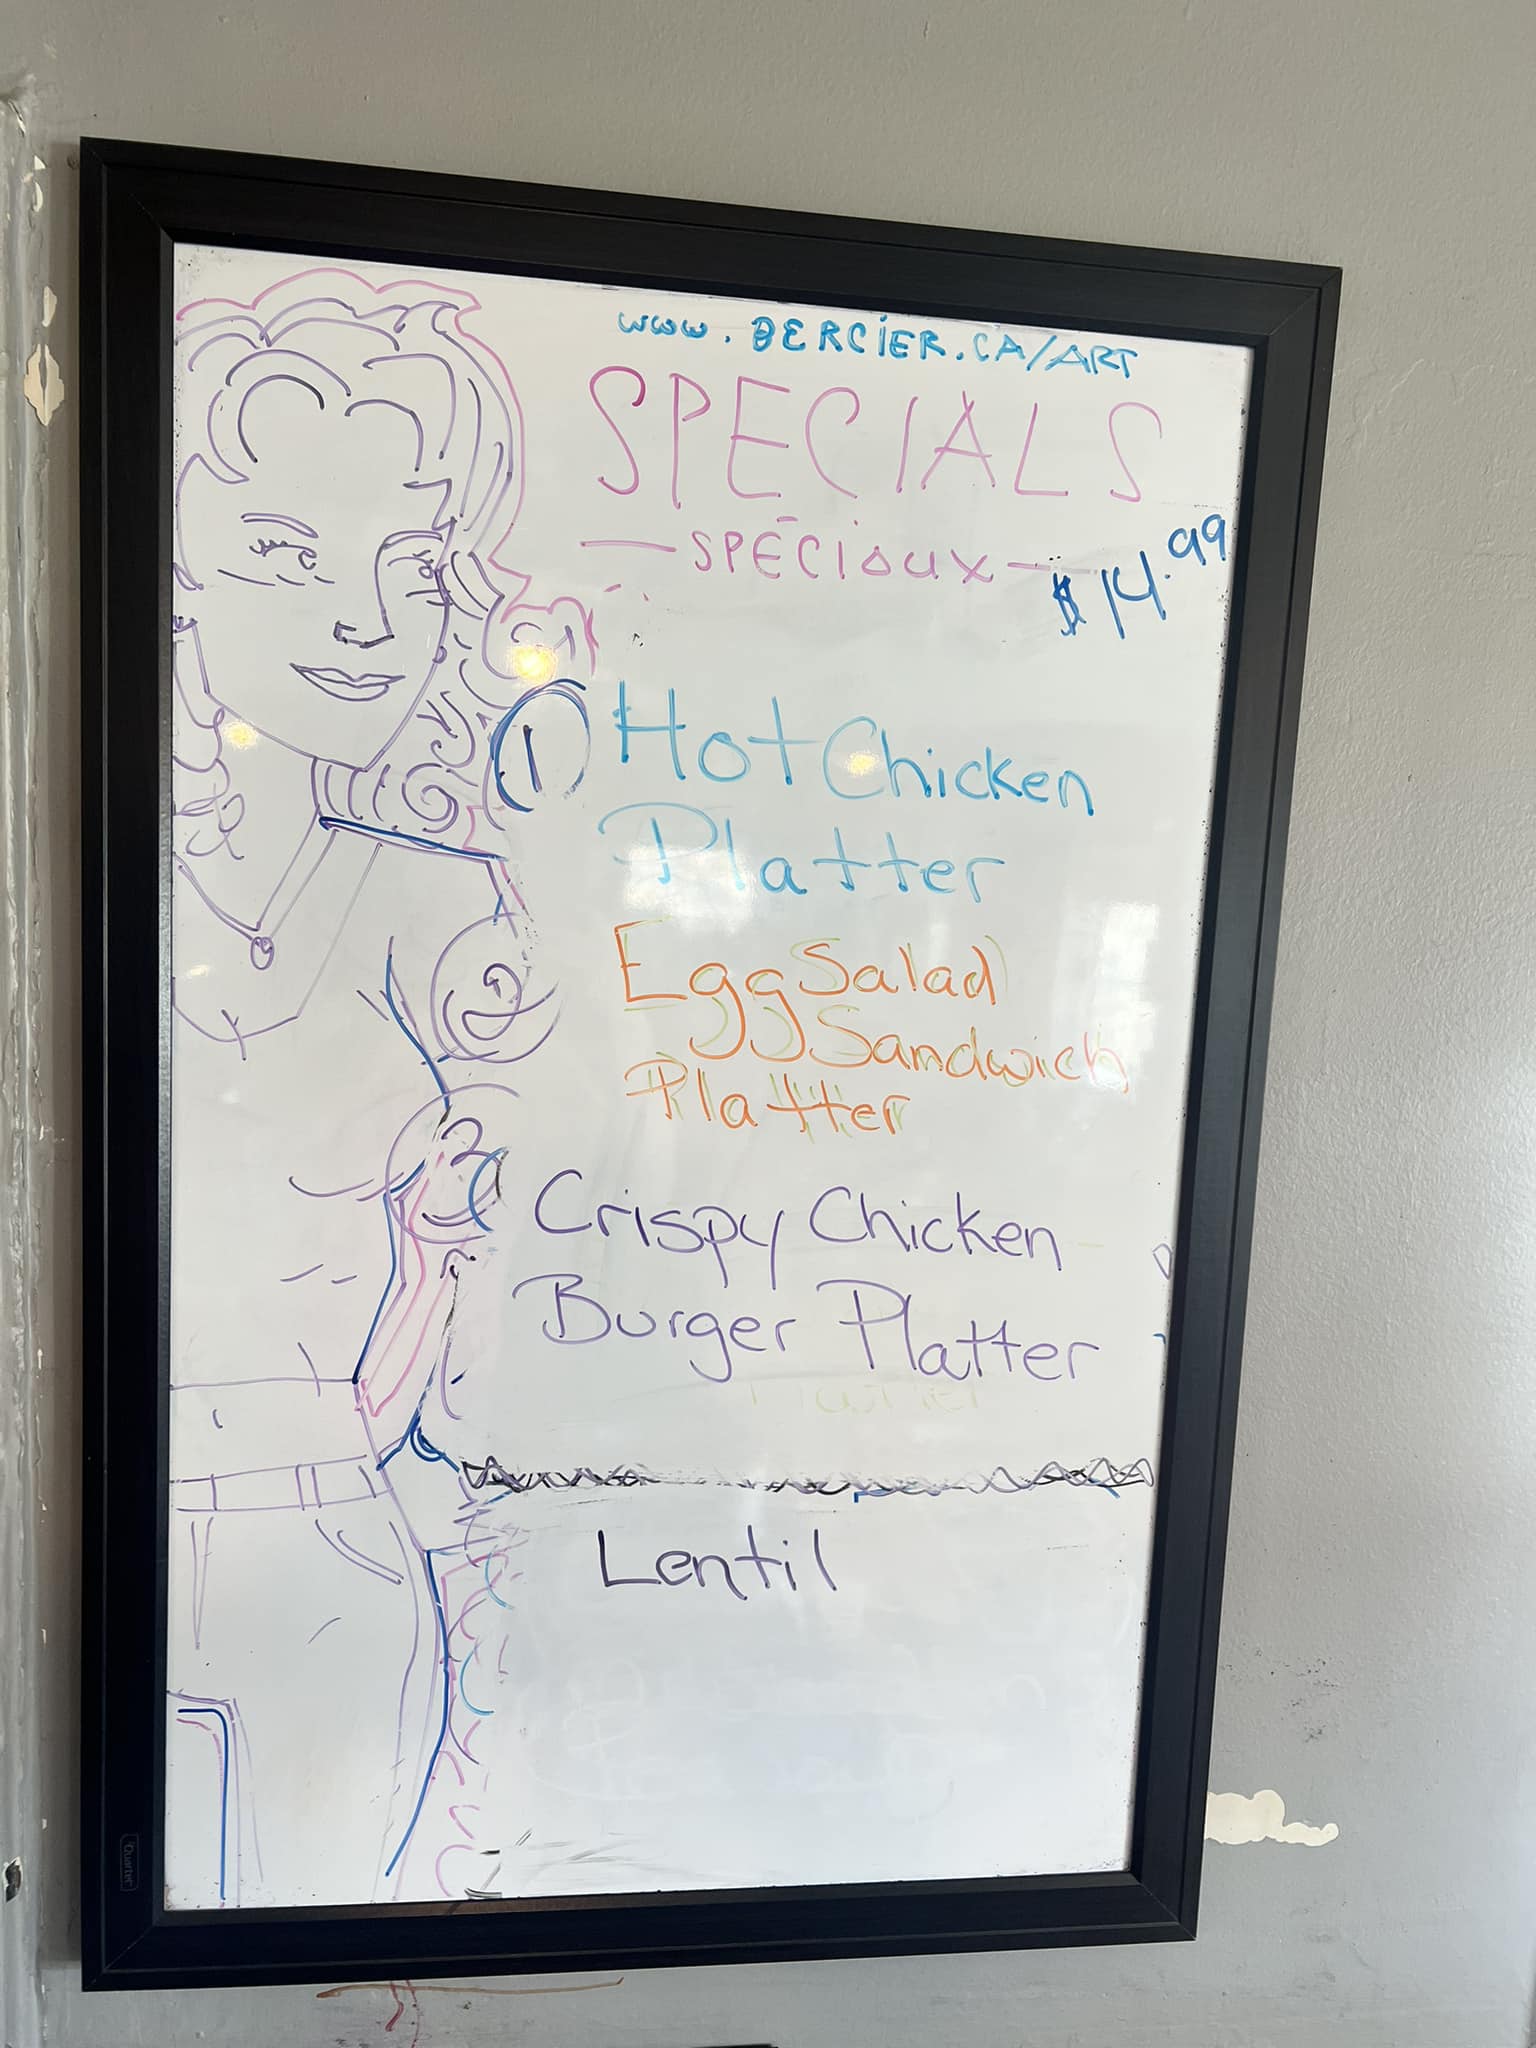 www.BERCIER.CA/ART
SPECIALS
— SPÉCIAUX —
$14.99
1 Hot Chicken
Platter
2 Egg Salad
Sandwich
Platter
3 Crispy Chicken
Burger Platter
Lentil